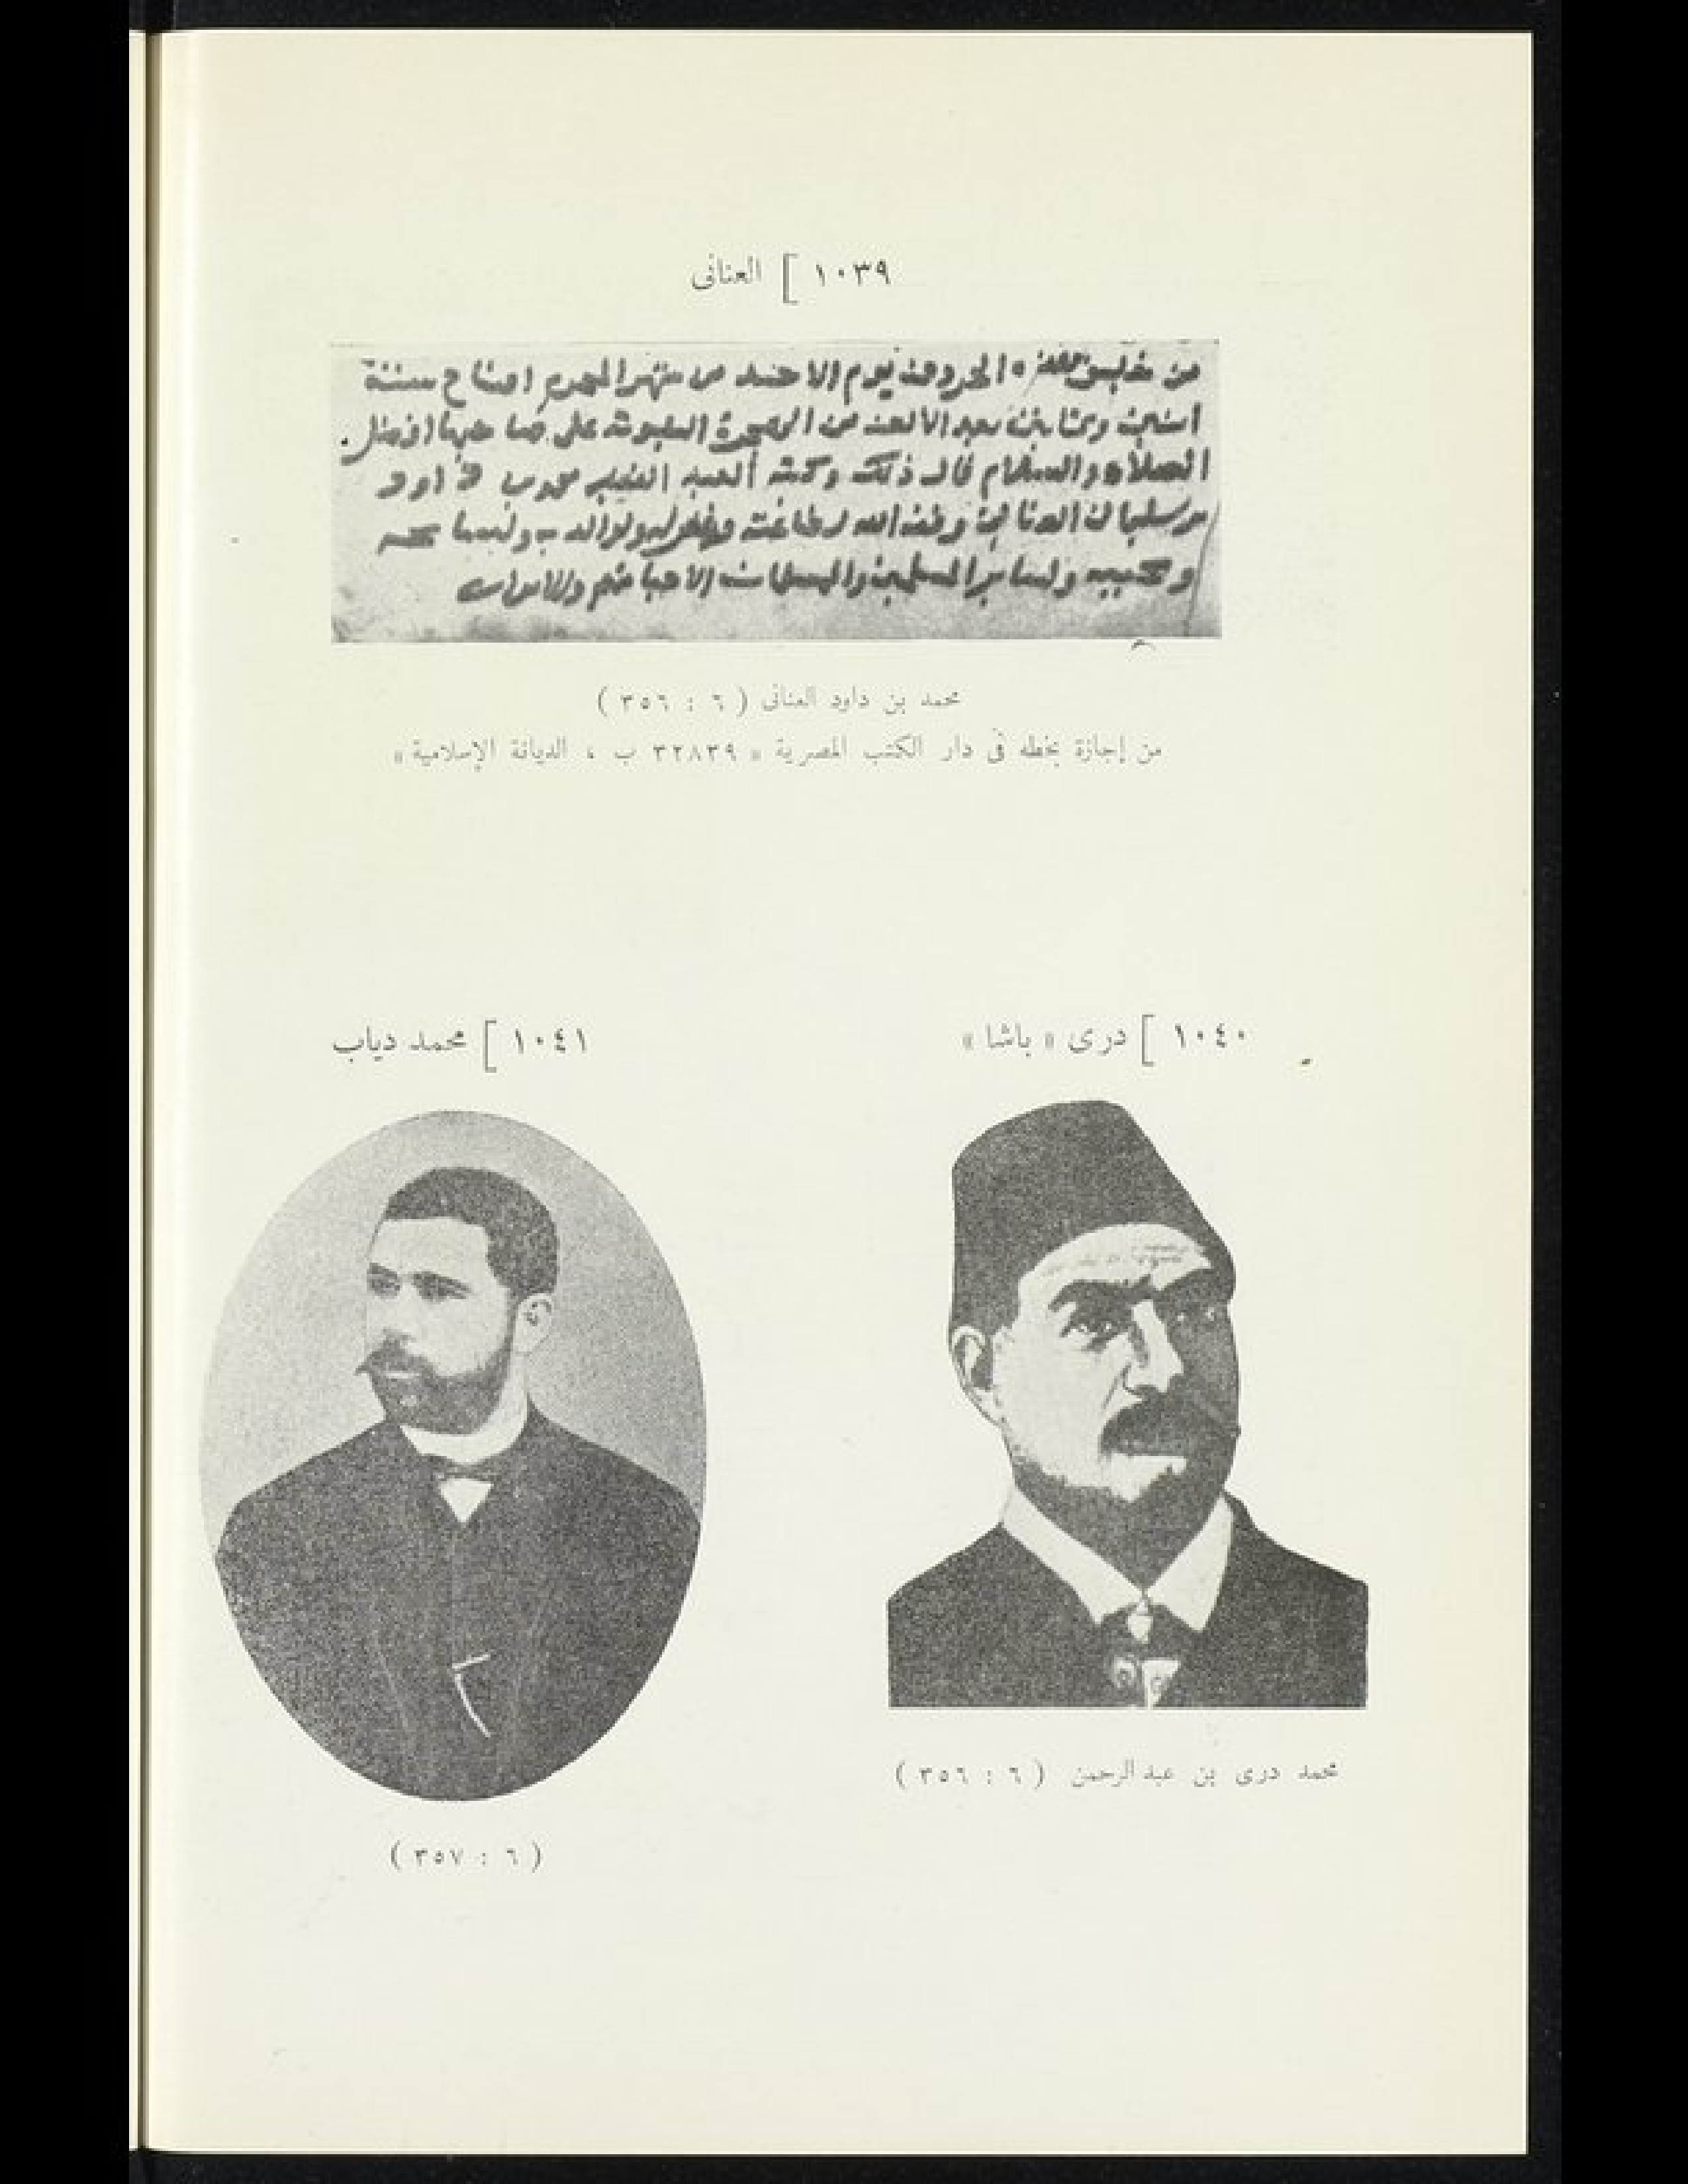 ١٠٣٩ [ العنانى
يوم الاحد من شهر المحرم افتتاح سنة
اثنين وثمانين بعد الالف من الهجرة النبوية على صاحبها افضل
الصلاة والسلام قال ذلك وكتبه العبد الفقير محمد بن داود
بن سليمان العنانى وفقه الله لطاعته وغفر له ولوالديه ولمشايخه
ومحبيه ولسائر المسلمين والمسلمات الاحيا منهم والاموات
محمد بن داود العنانى ( ٦ : ٣٥٦ )
من إجازة بخطه فى دار الكتب المصرية « ٣٢٨٣٩ ب ، الديانة الإسلامية »
١٠٤٠ [ درى « باشا »
محمد درى بن عبد الرحمن ( ٦ : ٣٥٦ )
١٠٤١ [ محمد دياب
( ٦ : ٣٥٧ )